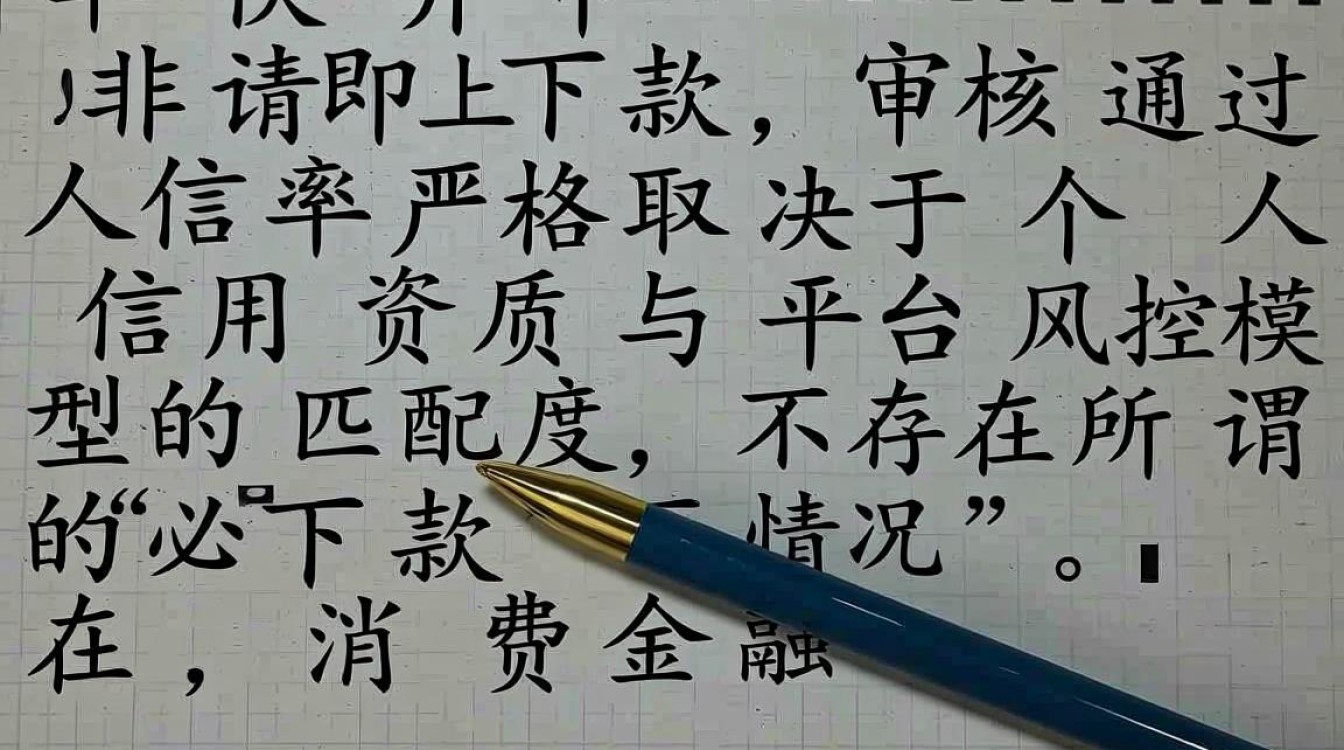 非请即上下款，审核通过
人信率严格取决于个人
信用资质与平台风控模
型的匹配度，不存在所谓
的“必下款情况”。
在，消费金融